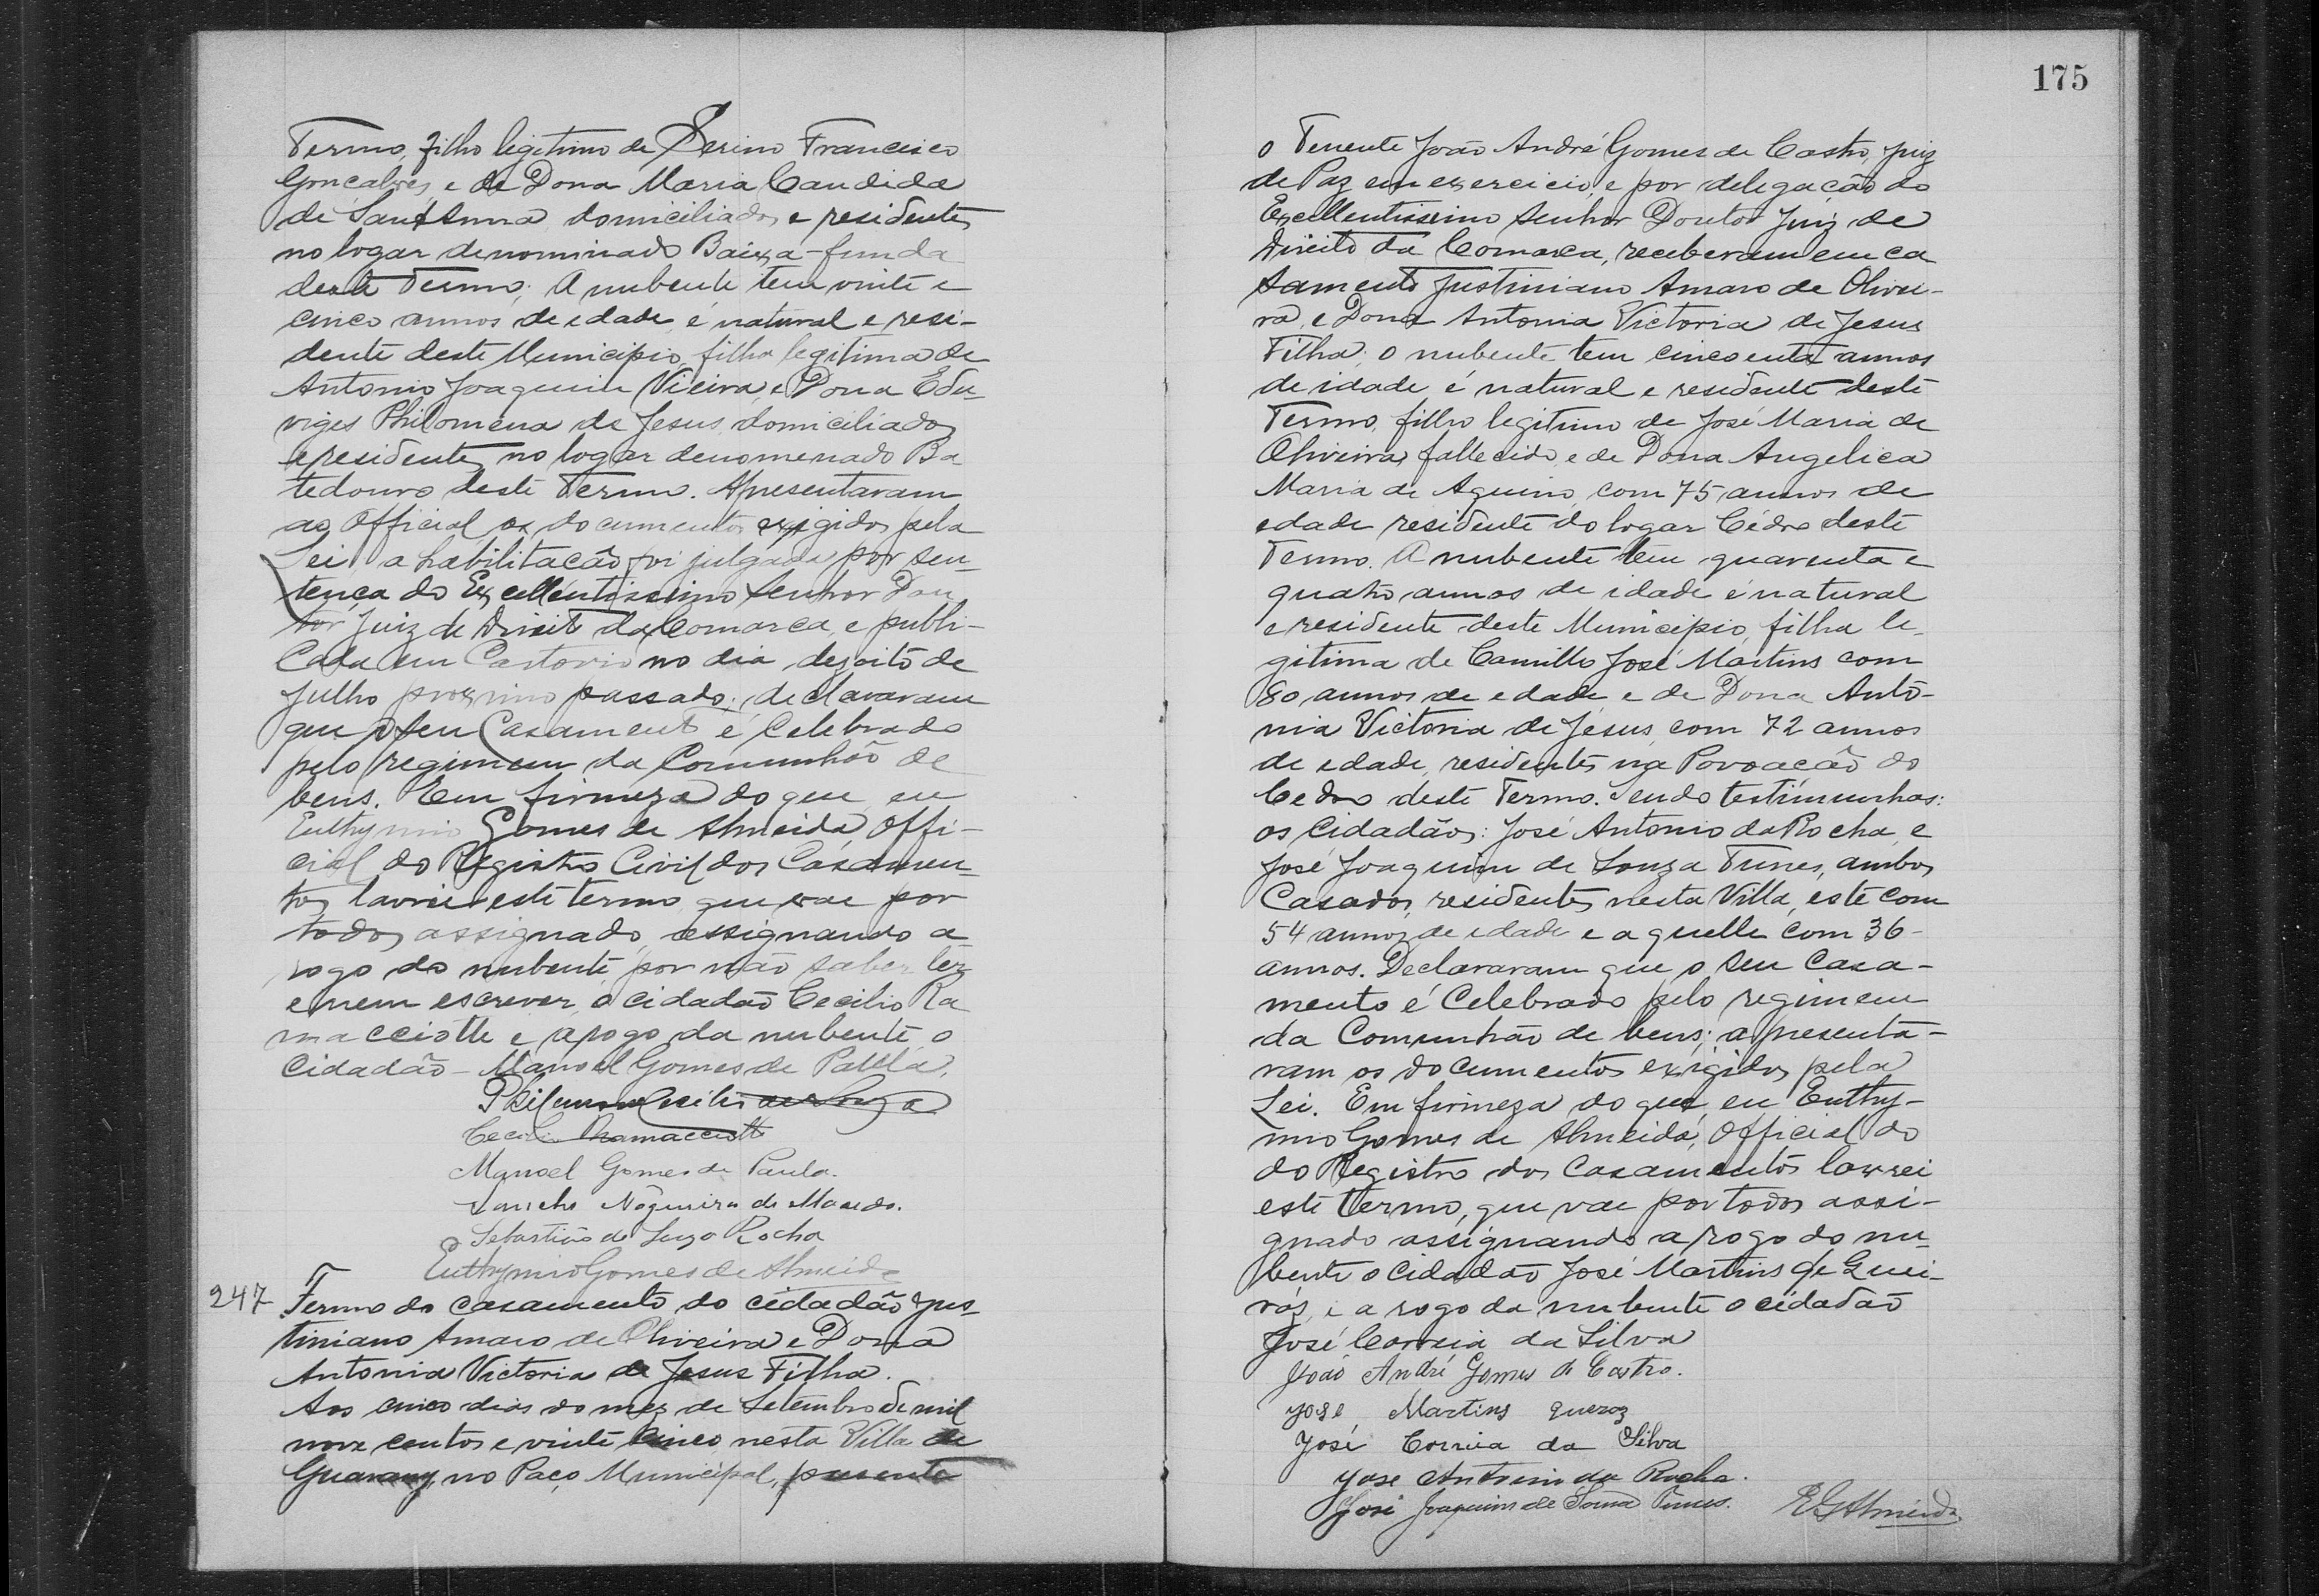 Termo, filho legitimo de Serino Francisco
Gonçalves, e de Dona Maria Candida
de Sant Anna domiciliados e residentes
no logar denominado Baixa-funda
deste Termo; A nubente tem vinte e
cinco annos de edade é natural e resi-
dente deste Municipio, filha legitima de
Antonio Joaquim Vieira, e Dona Edu-
viges Philomena de Jesus, domiciliados
e residentes no logar denomenado Ba
tedouro deste Termo. Apresentaram
ao Official os documentos exigidos pela
Lei, a habilitação foi julgada por sen-
tença do Excellentissimo Senhor Dou
tor Juiz de Direito da Comarca, e publi-
cada em Cartorio no dia dezoito de
Julho proximo passado; declararam
que o seu Casamento é Celebrado
pelo regimem da Comunhão de
bens. Em firmeza do que eu
Euthymio Gomes de Almeida, Offi-
cial do Registro Civil dos Casamen-
tos lavrei este termo que vae por
todos assignado, assignando a
rogo do nubente por não saber ler
e nem escrever, o cidadão Cecilio Ra
macciotte e a rogo da nubente, o
Cidadão - Manoel Gomes de Paula.
Philemon Cecilio de Souza
Cecilio Ramacciotti
Manoel Gomes de Paula.
Sancho Nogueira de Macedo.
Sebastião de Souza Rocha
Euthymio Gomes de Almeida
247 Termo do casamento do cidadão Jus-
tiniano Amaro de Oliveira e Dona
Antonia Victoria de Jesus Filha.
Aos cinco dias do mez de Setembro de mil
nove centos e vinte cinco nesta Villa de
Guarany, no Paço Municipal, presente
175
o Tenente João André Gomes de Castro, Juiz
de Paz em exercicio, e por delegação do
Excellentissimo Senhor Doutor Juiz de
Direito da Comarca, receberam em ca
samento Justiniano Amaro de Olivei-
ra, e Dona Antonia Victoria de Jesus
Filha; o nubente tem cincoenta annos
de idade é natural e residente deste
Termo, filho legitimo de José Maria de
Oliveira, fallecido, e de Dona Angelica
Maria de Aquino, com 75 annos de
edade residente do logar Cédro deste
Termo. A nubente tem quarenta e
quatro annos de idade é natural
e residente deste Municipio, filha le-
gitima de Camillo José Martins com
80 annos de edade e de Dona Anto-
nia Victoria de Jesus, com 72 annos
de edade, residentes na Povoação do
Cedro deste Termo. Sendo testimunhas:
os Cidadãos: José Antonio da Rocha, e
José Joaquim de Souza Tunes, ambos
Casados, residentes nesta Villa, este com
54 annos de edade e aquelle com 36-
annos. Declararam que o seu Casa-
mento é Celebrado pelo regimem
da Comunhão de bens; apresenta-
ram os documentos exigidos pela
Lei. Em firmeza do que, eu Euthy-
mio Gomes de Almeida, Official do
do Registro dos Casamentos lavrei
este termo, que vae por todos assi-
gnado assignando a rogo do nu-
bente o cidadão José Martins de Quei-
rós, e a rogo da nubente o cidadão
José Correia da Silva
João André Gomes de Castro.
José Martins Queroz
José Correia da Silva
José Antonio da Rocha.
José Joaquim de Souza Tunes.
EGAlmeida